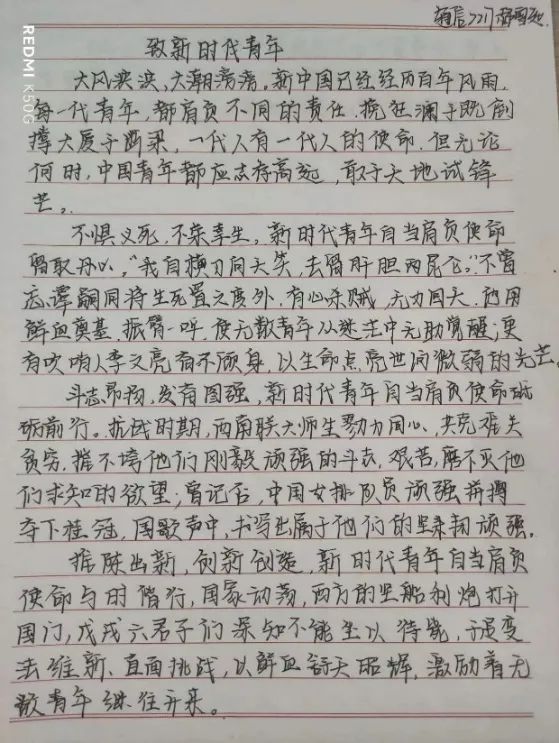 通信2217
REDMI K50G
致新时代青年
大风泱泱,大潮滂滂。新中国已经经历百年风雨,
每一代青年,都肩负不同的责任.挽狂澜于既倒
撑大厦于断梁,一代人有一代人的使命.但无论
何时,中国青年都应志存高远,敢于天地试锋
芒。
不惧义死,不荣幸生。新时代青年自当肩负使命
留取丹心。“我自横刀向天笑,去留肝胆两昆仑。”不曾
忘谭嗣同将生死置之度外,有心杀贼,无力回天.他用
鲜血奠基,振臂一呼,使无数青年从迷茫中觉醒;更
有吹哨人李文亮奋不顾身,以生命点亮世间微弱的光芒。
斗志昂扬,发奋图强,新时代青年自当肩负使命砥
砺前行。抗战时期,西南联大师生勠力同心,共克难关
贫穷,摧不垮他们刚毅顽强的斗志,艰苦,磨不灭他
们求知的欲望;曾记否,中国女排队员顽强拼搏
夺下桂冠,国歌声中,书写出属于他们的坚韧顽强。
推陈出新,创新创造,新时代青年自当肩负
使命与时偕行,国家动荡,西方的坚船利炮打开
国门,戊戌六君子们深知不能坐以待毙,于是变
法维新、直面挑战,以鲜血衍天昭辉,激励着无
数青年继往开来。